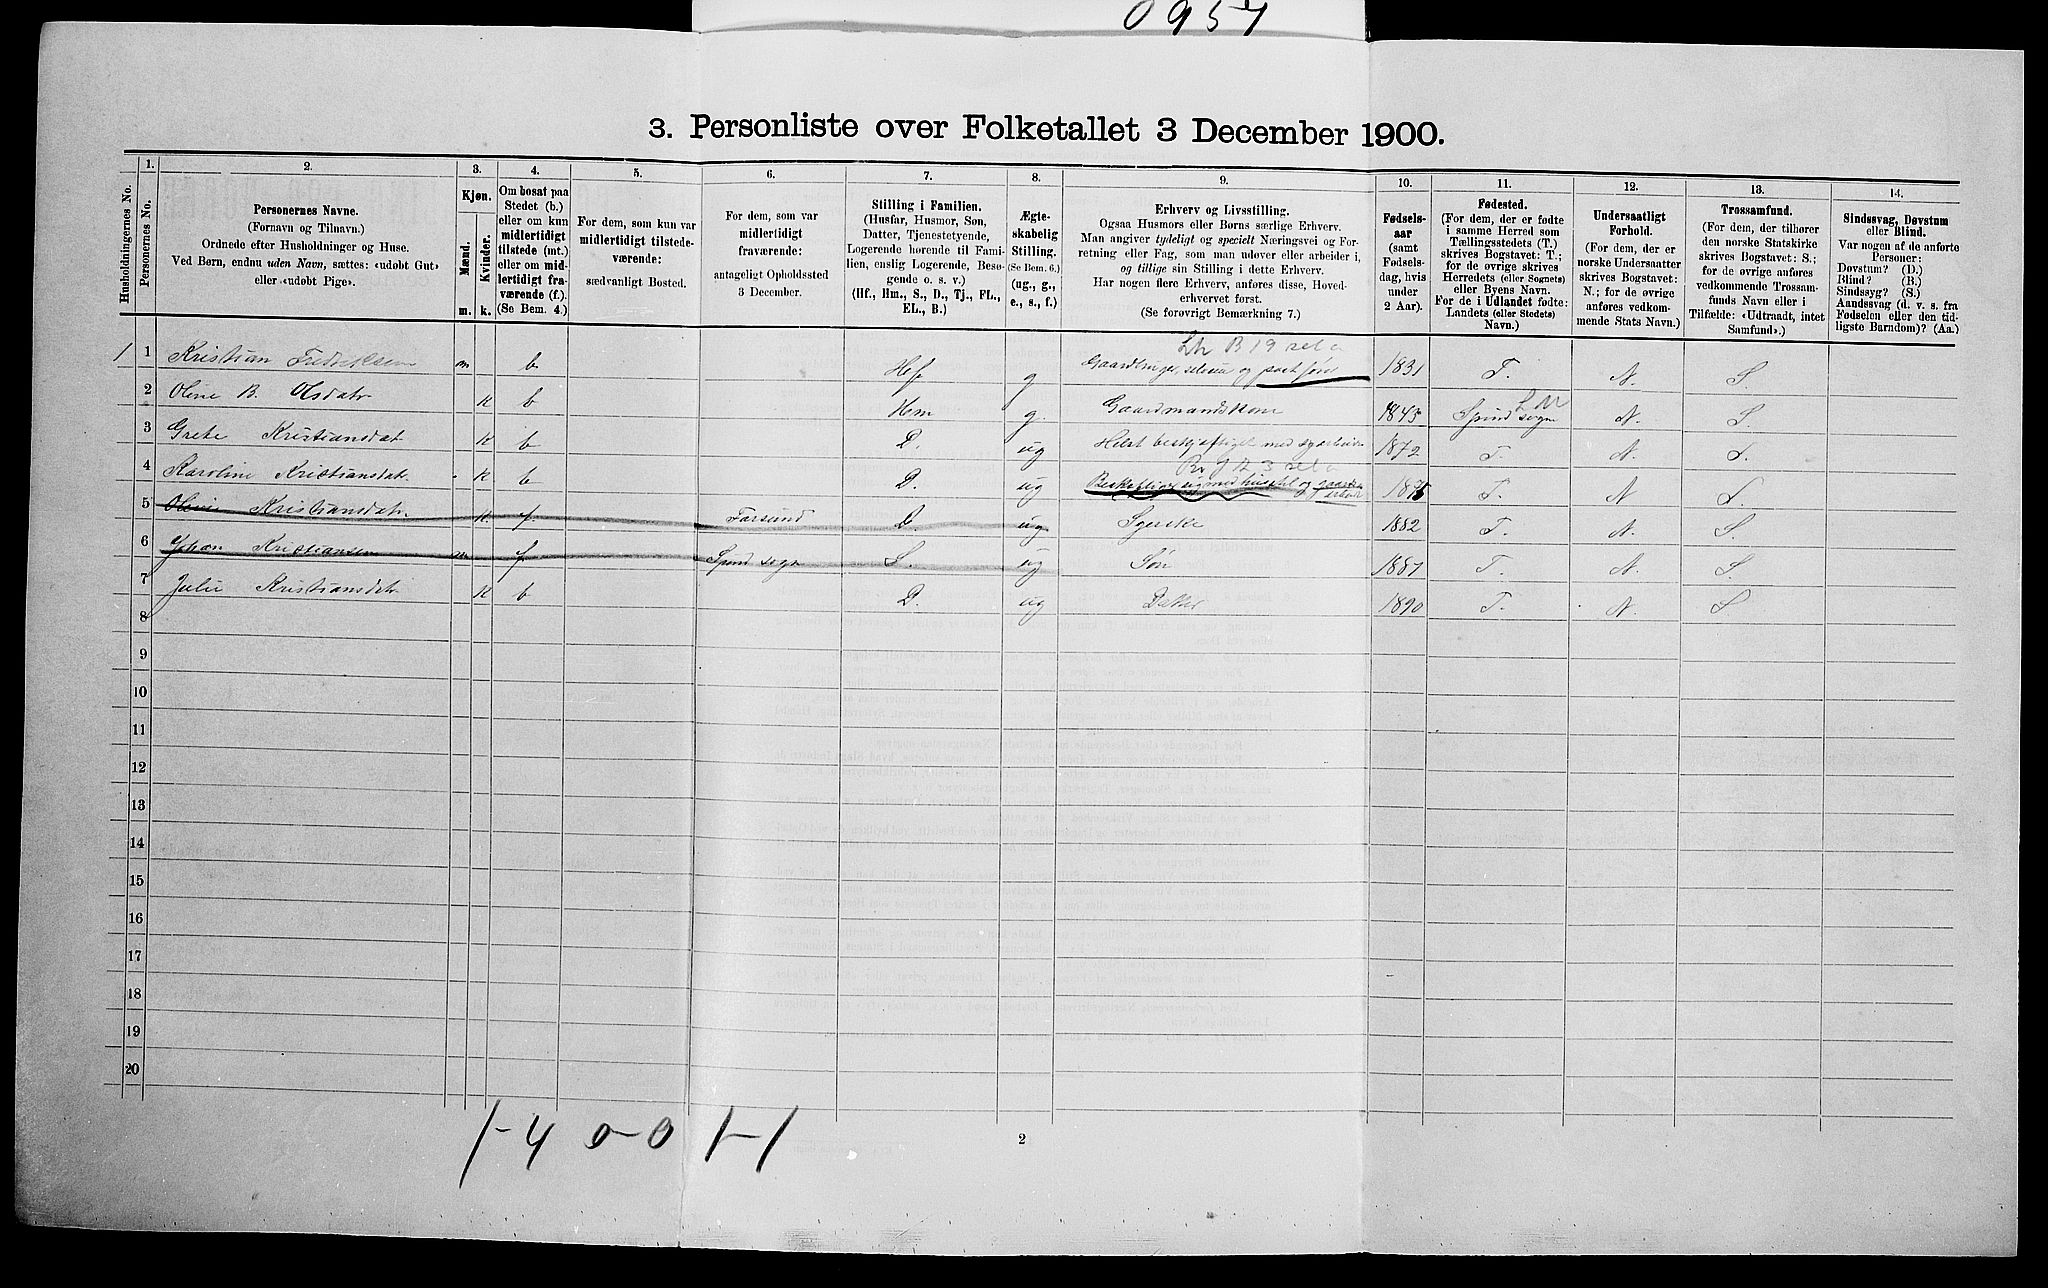 0957
3. Personliste over Folketallet 3 December 1900.
Husholdningernes No.
1.
Personernes No.
2.
Personernes Navne.
(Fornavn og Tilnavn.)
Ordnede efter Husholdninger og Huse.
Ved Børn, endnu uden Navn, sættes: «udøbt Gut»
eller «udøbt Pige».
3.
Kjøn.
Mænd.
Kvinder.
m. k.
4.
Om bosat paa
Stedet (b.)
eller om kun
midlertidigt
tilstede (mt.)
eller om mid-
lertidigt fra-
værende (f.).
(Se Bem. 4.)
5.
For dem, som kun var
midlertidigt tilstede-
værende:
sædvanligt Bosted.
6.
For dem, som var
midlertidigt
fraværende:
antageligt Opholdssted
3 December.
7.
Stilling i Familien.
(Husfar, Husmor, Søn,
Datter, Tjenestetyende,
Logerende hørende til Fami-
lien, enslig Logerende, Besø-
gende o. s. v.)
(Hf., Hm., S., D., Tj., FL.,
EL., B.)
8.
Ægte-
skabelig
Stilling.
(Se Bem. 6.)
(ug., g.,
e., s., f.)
9.
Erhverv og Livsstilling.
Ogsaa Husmors eller Børns særlige Erhverv.
Man angiver tydeligt og specielt Næringsvei og For-
retning eller Fag, som man udøver eller arbeider i,
og tillige sin Stilling i dette Erhverv.
Har nogen flere Erhverv, anføres disse, Hoved-
erhvervet først.
(Se forøvrigt Bemærkning 7.)
10.
Fødsels-
aar
(samt
Fødsels-
dag, hvis
under
2 Aar).
11.
Fødested.
(For dem, der er fødte
i samme Herred som
Tællingsstedets (T.)
skrives Bogstavet: T.;
for de øvrige skrives
Herredets (eller Sognets)
eller Byens Navn.
For de i Udlandet fødte:
Landets (eller Stedets)
Navn.)
12.
Undersaatligt
Forhold.
(For dem, der er
norske Undersaatter
skrives Bogstavet:
N.; for de øvrige
anføres vedkom-
mende Stats Navn.)
13.
Trossamfund.
(For dem, der tilhører
den norske Statskirke
skrives Bogstavet: S.;
for de øvrige anføres
vedkommende Trossam-
funds Navn eller i
Tilfælde: «Udtraadt, intet
Samfund».)
14.
Sindssvag, Døvstum
eller Blind.
Var nogen af de anførte
Personer:
Døvstum? (D.)
Blind? (B.)
Sindssyg? (S.)
Aandssvag (d. v. s. fra
Fødselen eller den tid-
ligste Barndom)? (Aa.)
1 1 Kristian Fredriksen m b Hf g Gaardbruger, selveier og 1831 T. N. S.
2 Olene B. Olsdatr k b Hm g. Gaardmandskone 1845 Spind sogn L M N. S.
3 Grete Kristiansdat k b D. ug Helst beskjæftiget med 1872 T. N. S.
4 Karoline Kristiansdatr k b D. ug med husstel og gaards arbeide 1875 T. N S.
5 Kristiansdatr k f. Farsund D. ug Syerske 1882 T. N. S.
6 Johan Kristiansen m f. Spind sogn S. ug Søn 1887 T. N. S.
7 Julie Kristiansdatr k b D. ug Datter 1890 T. N. S
8
9
10
11
12
13
14
15
16
17
18
19
20
1-4 0-0 1-1
2